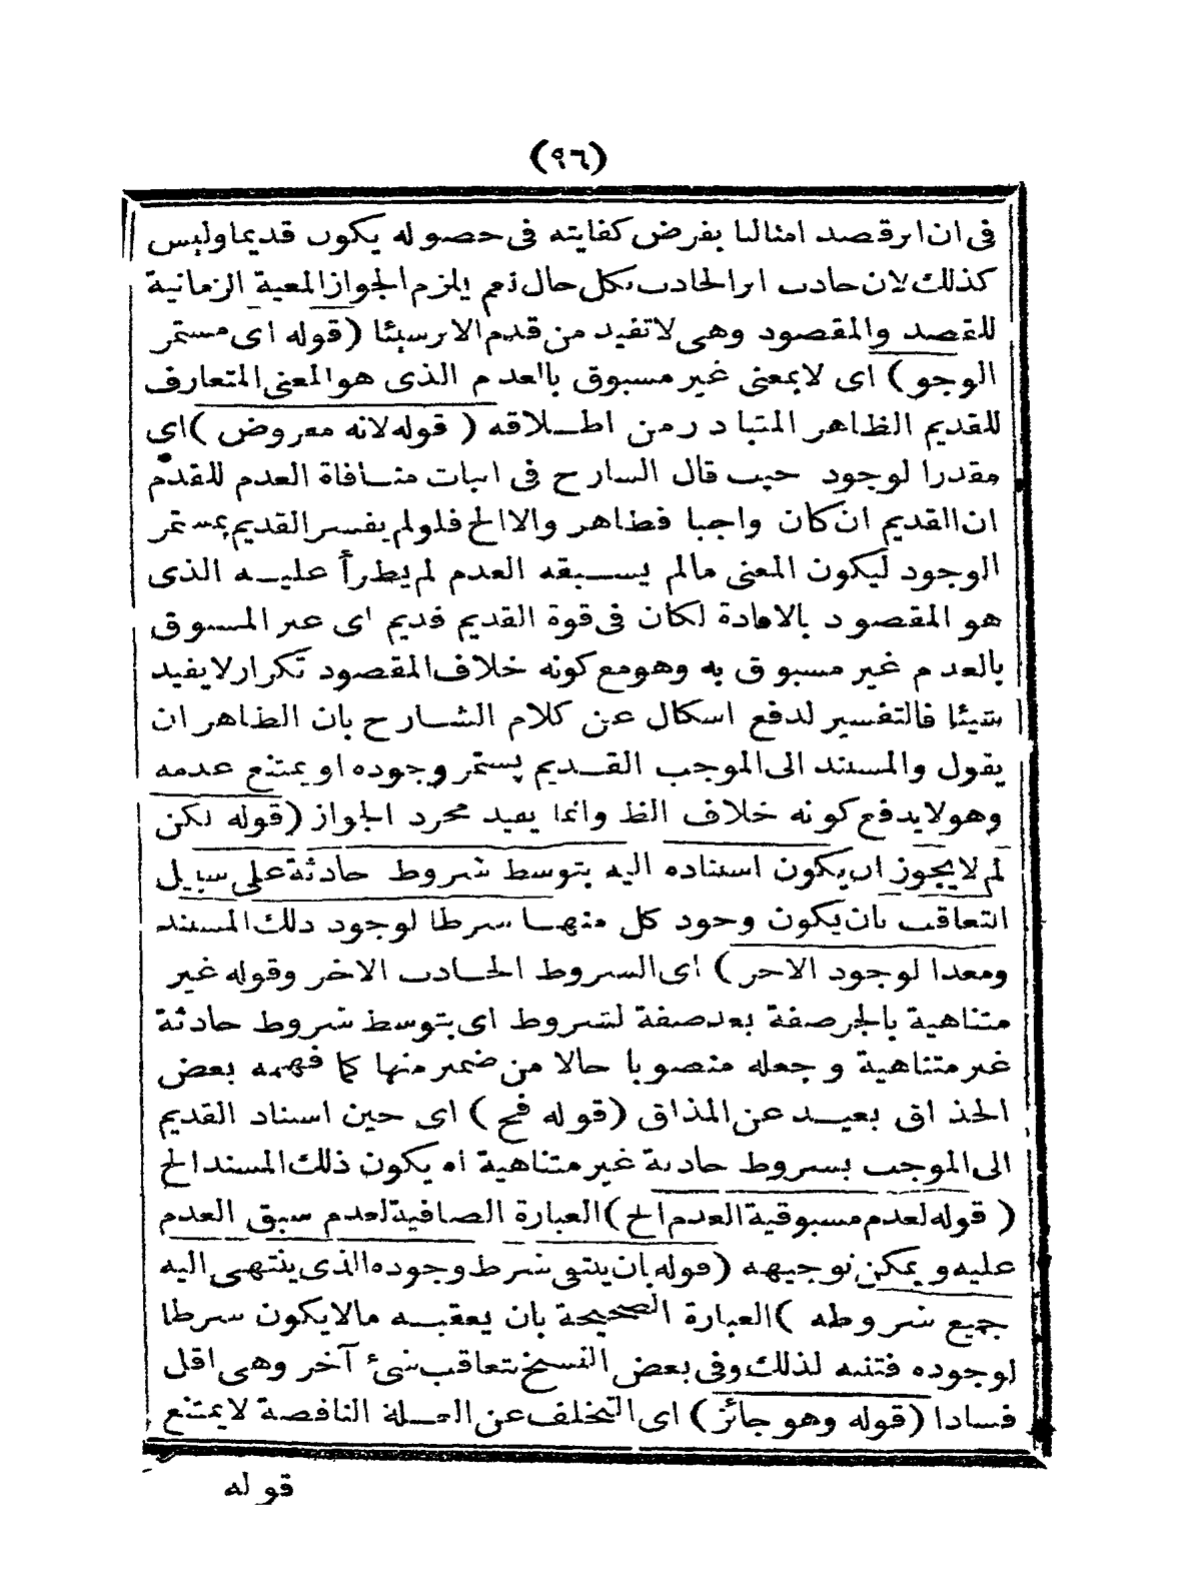 (٩٦)
فى ان اثر قصد امثالنا بفرض كفايته فى حصوله يكون قديما وليس
كذلك لان حادث اثر الحادث بكل حال نعم يلزم الجواز المعية الزمانية
للقصد والمقصود وهى لا تفيد من قدم الاثر شيئا (قوله اى مستمر
الوجو) اى لا بمعنى غير مسبوق بالعدم الذى هو المعنى المتعارف
للقديم الظاهر المتبادر من اطلاقه ( قوله لانه معروض ) اى
مقدرا لوجود حيث قال الشارح فى اثبات منافاة العدم للقدم
ان القديم ان كان واجبا فظاهر والا الخ فلو لم يفسر القديم بمستمر
الوجود ليكون المعنى مالم يسبقه العدم لم يطرأ عليه الذى
هو المقصود بالافادة لكان فى قوة القديم قديم اى غير المسبوق
بالعدم غير مسبوق به وهو مع كونه خلاف المقصود تكرار لا يفيد
شيئا فالتفسير لدفع اشكال عن كلام الشارح بان الظاهر ان
يقول والمستند الى الموجب القديم يستمر وجوده او يمتنع عدمه
وهو لا يدفع كونه خلاف الظ وانما يفيد مجرد الجواز (قوله لكن
لم لا يجوز ان يكون استناده اليه بتوسط شروط حادثة على سبيل
التعاقب بان يكون وجود كل منها شرطا لوجود ذلك المستند
ومعدا لوجود الاخر ) اى الشروط الحادث الاخر وقوله غير
متناهية بالجر صفة بعد صفة لشروط اى بتوسط شروط حادثة
غير متناهية وجعله منصوبا حالا من ضمير منها كما فهمه بعض
الحذاق بعيد عن المذاق (قوله فح ) اى حين اسناد القديم
الى الموجب بشروط حادثة غير متناهية اه يكون ذلك المسند الخ
( قوله لعدم مسبوقية العدم الخ ) العبارة الصافية لعدم سبق العدم
عليه و يمكن توجيهه (قوله بان ينتهى شرط وجوده الذى ينتهى اليه
جميع شروطه ) العبارة الصحيحة بان يعقبه مالا يكون شرطا
لوجوده فتنبه لذلك وفى بعض النسخ بتعاقب شئ آخر وهى اقل
فسادا (قوله وهو جائز) اى التخلف عن العلة الناقصة لا يمتنع
قوله